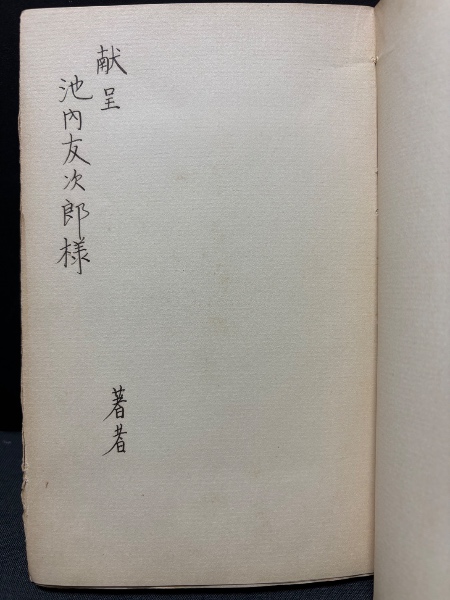 献呈
池内友次郎様
著者